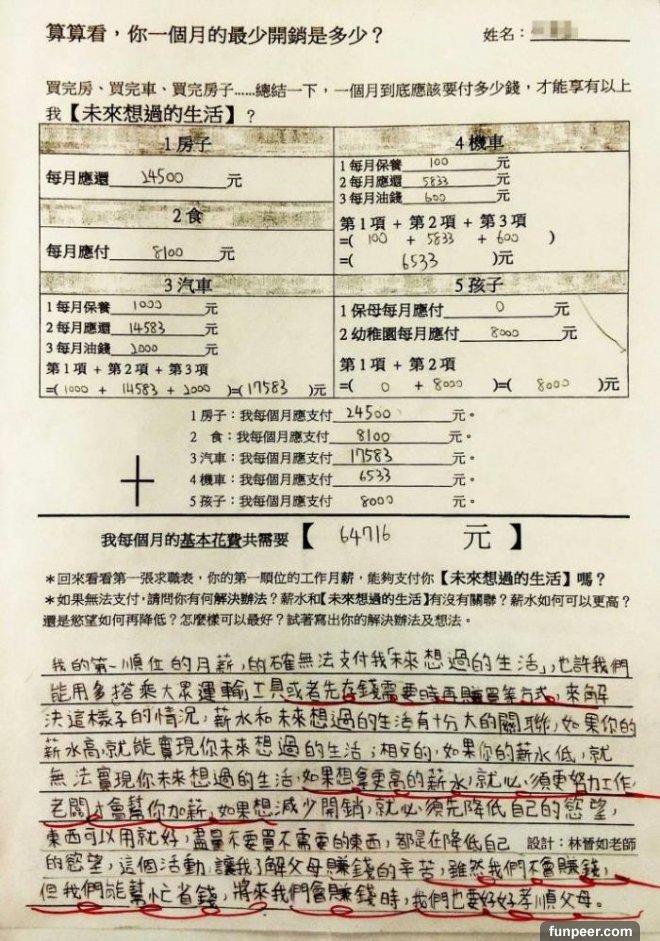 算算看，你一個月的最少開銷是多少？ 姓名：
買完房、買完車、買完房子……總結一下，一個月到底應該要付多少錢，才能享有以上
我【未來想過的生活】？
1 房子
每月應還 24500 元
2 食
每月應付 8100 元
3 汽車
1 每月保養 1000 元
2 每月應還 14583 元
3 每月油錢 2000 元
第 1 項 + 第 2 項 + 第 3 項
=( 1000 + 14583 + 2000 )=( 17583 )元
4 機車
1 每月保養 100 元
2 每月應還 5833 元
3 每月油錢 600 元
第 1 項 + 第 2 項 + 第 3 項
=( 100 + 5833 + 600 )
=( 6533 )元
5 孩子
1 保母每月應付 0 元
2 幼稚園每月應付 8000 元
第 1 項 + 第 2 項
=( 0 + 8000 )=( 8000 )元
1 房子：我每個月應支付 24500 元。
2 食：我每個月應支付 8100 元。
3 汽車：我每個月應支付 17583 元。
4 機車：我每個月應支付 6533 元。
5 孩子：我每個月應支付 8000 元。
+
我每個月的基本花費共需要【 64716 元 】
*回來看看第一張求職表，你的第一順位的工作月薪，能夠支付你【未來想過的生活】嗎？
*如果無法支付，請問你有何解決辦法？薪水和【未來想過的生活】有沒有關聯？薪水如何可以更高？
還是慾望如何再降低？怎麼樣可以最好？試著寫出你的解決辦法及想法。
我的第一順位的月薪，的確無法支付我「未來想過的生活」，也許我們
能用多搭乘大眾運輸工具或者先存錢需要時再購買等方式，來解
決這樣子的情況，薪水和未來想過的生活有十分大的關聯，如果你的
薪水高，就能實現你未來想過的生活；相反的，如果你的薪水低，就
無法實現你未來想過的生活，如果想拿更高的薪水，就必須更努力工作，
老闆才會幫你加薪，如果想減少開銷，就必須先降低自己的慾望，
東西可以用就好，盡量不要買不需要的東西，都是在降低自己 設計：林晉如老師
的慾望，這個活動，讓我了解父母賺錢的辛苦，雖然我們不會賺錢，
但我們能幫忙省錢，將來我們會賺錢時，我們也要好好孝順父母。
funpeer.com